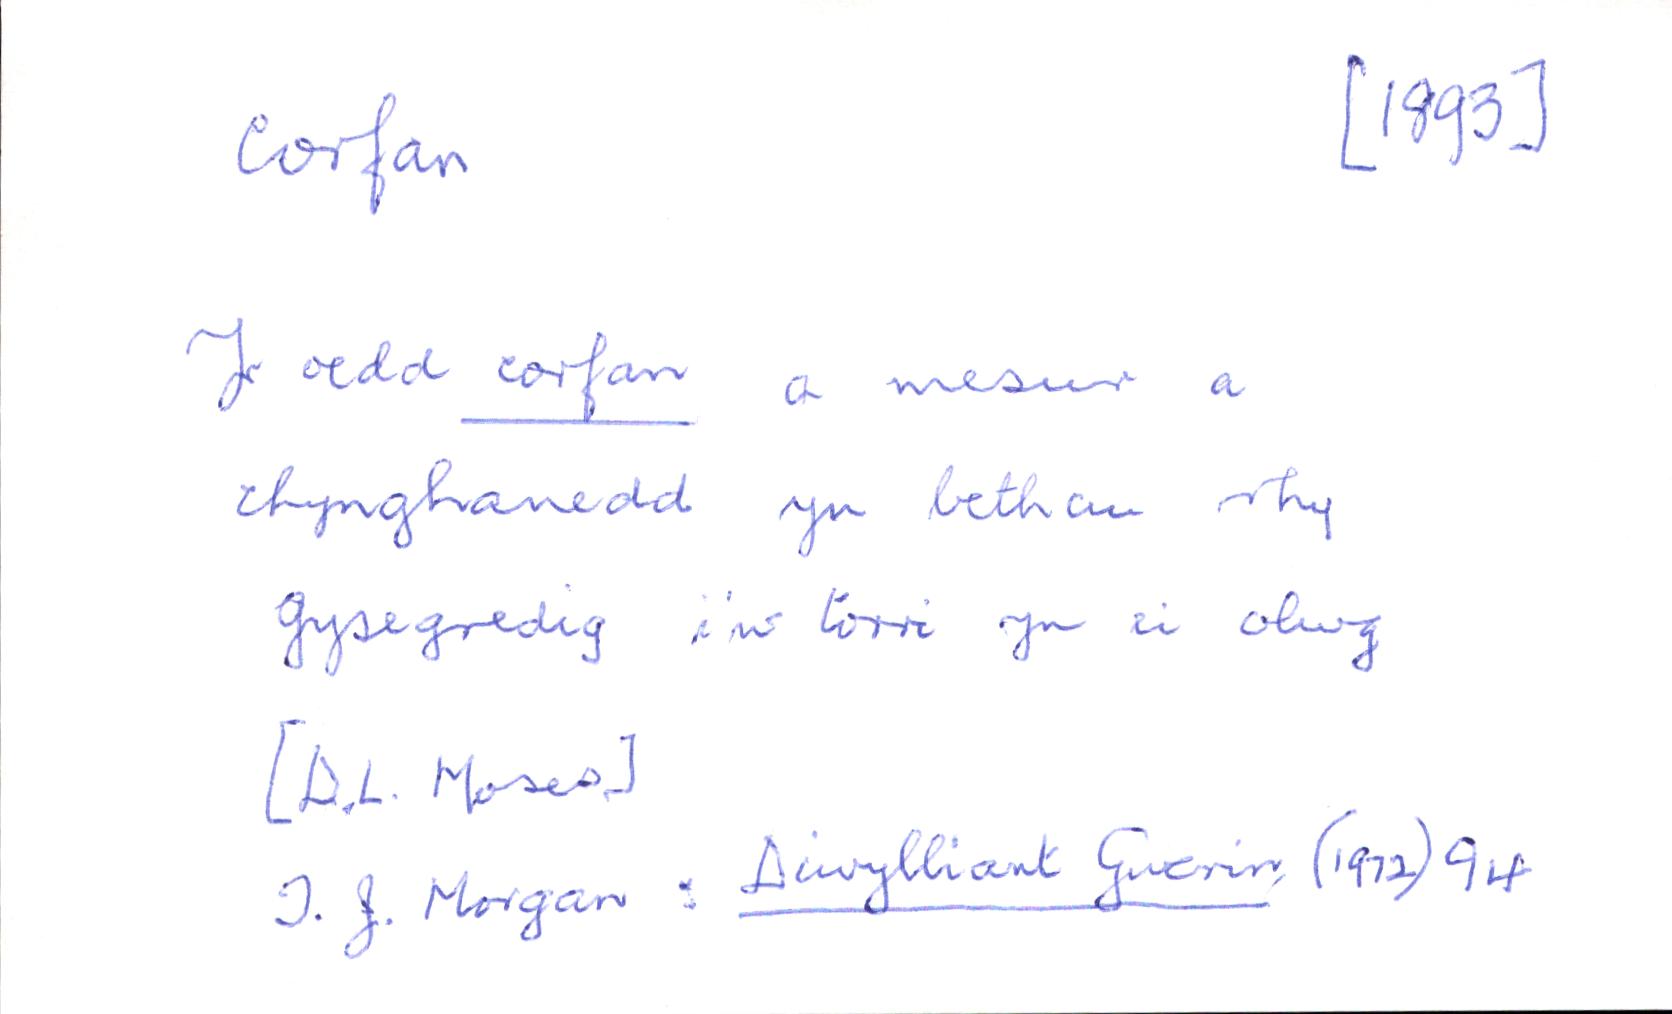 Corfan [1893]
Yr oedd corfan a mesur a
chynghanedd yn bethau rhy
gysegredig i'w torri yn ei olwg
[D.L. Moses]
T. J. Morgan : Diwylliant Gwerin (1972) 94